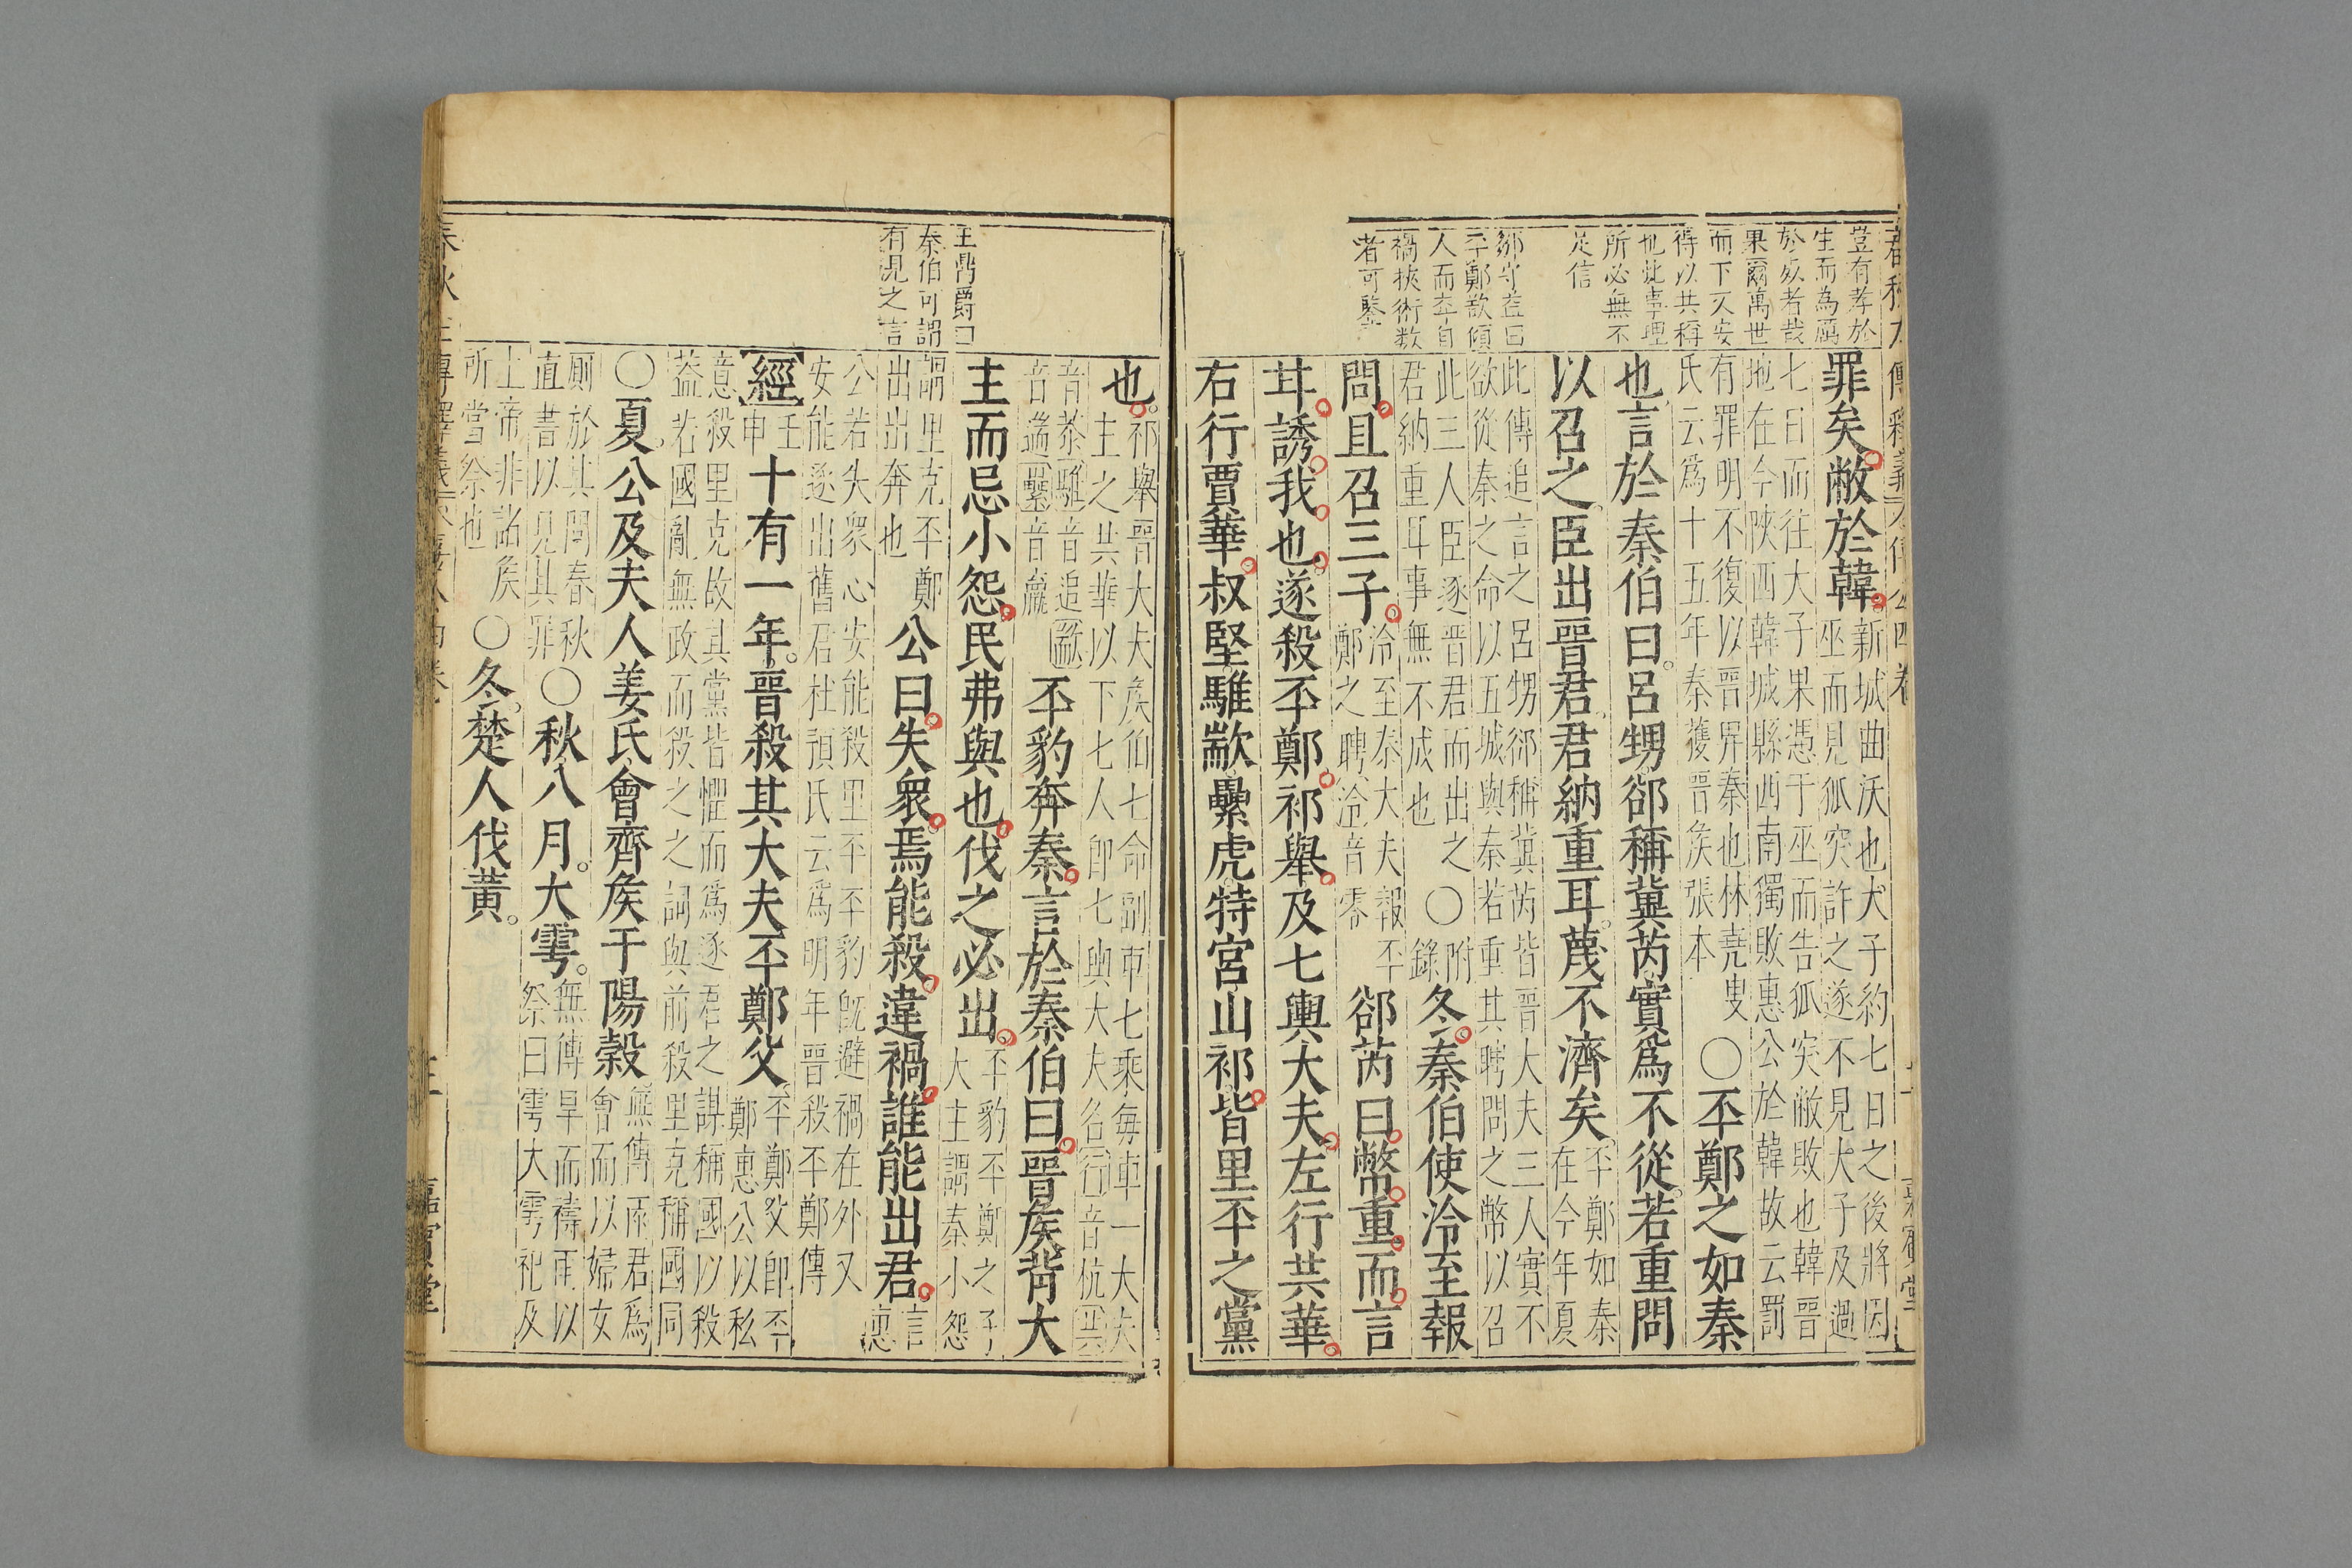 豈有孝於
生而為厲
於死者哉
果爾萬世
而下又安
得以共稱
也此事理
所必無不
足信
鄒守益曰
丕鄭欲傾
人而卒自
禍挾術数
者可鑒
罪矣敝於韓新城曲沃也犬子約七日之後將因
巫而見狐突許之遂不見犬子及過
七日而往大子果憑于巫而告狐突敝敗也韓晉
地在今陝西韓城縣西南獨敗惠公於韓故云罰
有罪明不復以晉畀秦也林堯叟
氏云爲十五年秦獲晉矦張本
〇丕鄭之如秦
也言於秦伯曰呂甥郤稱冀芮實爲不從若重問
以召之臣出晉君君納重耳蔑不濟矣丕鄭如秦
在今年夏
此傳追言之呂甥郤稱冀芮皆晉大夫三人實不
欲從秦之命以五城與秦若重其聘問之幣以召
此三人臣逐晉君而出之〇附
君納重耳事無不成也錄
冬秦伯使泠至報
問且召三子泠至秦大夫報丕
鄭之聘泠音零
郤芮曰幣重而言
甘誘我也遂殺丕鄭祁舉及七輿大夫左行共華
右行賈華叔堅騅歂纍虎特宮山祁皆里丕之黨
王鼎爵曰
秦伯可謂
有見之言
也祁舉晉大夫矦伯七命副車七乘每車一大夫
主之共華以下七人卽七輿大夫名行音杭共
音恭騅音追歂
音遄纍音羸
丕豹奔秦言於秦伯曰晉矦背大
主而忌小怨民弗與也伐之必出丕豹丕鄭之子
大主謂秦小怨
謂里克丕鄭
出出奔也
公曰失衆焉能殺違禍誰能出君言
惠
公若失衆心安能殺里丕丕豹旣避禍在外又
安能逐出舊君杜預氏云爲明年晉殺丕鄭傳
經壬
申
十有一年晉殺其大夫丕鄭父丕鄭父卽丕
鄭惠公以私
意殺里克故其黨皆懼而爲逐君之謀稱國以殺
蓋若國亂無政而殺之之詞與前殺里克稱國同
〇夏公及夫人姜氏會齊矦于陽穀無傳雨君爲
會而以婦女
厠於其間春秋
直書以見其罪
〇秋八月大雩無傳旱而禱雨以
祭曰雩大雩祀及
上帝非諸矦
所當祭也
〇冬楚人伐黃